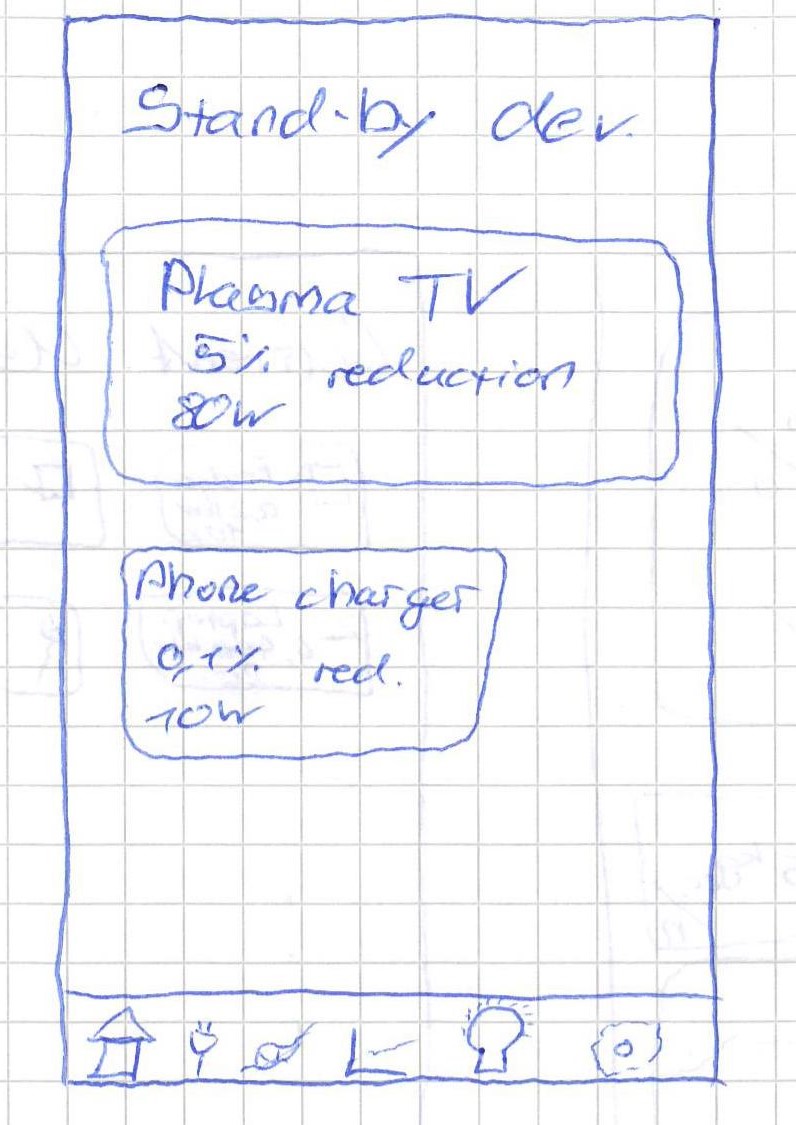 Stand-by dev.
Plasma TV
5% reduction
80W
Phone charger
0,1% red.
10W